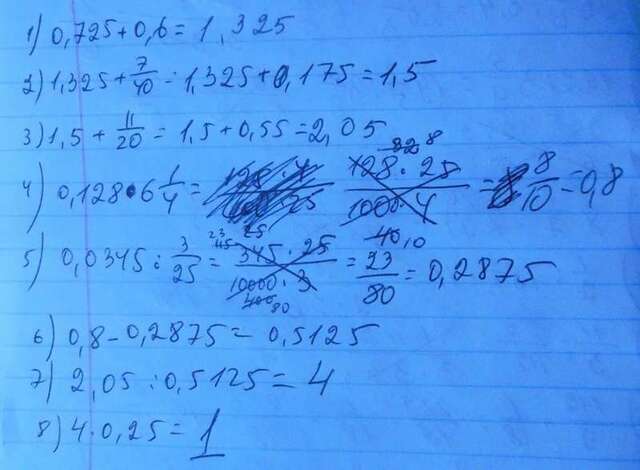 1) 0,725+0,6=1,325
2) 1,325+7/40=1,325+0,175=1,5
3) 1,5+11/20=1,5+0,55=2,05
4) 0,128·6 1/4= 128·25/1000·4=8/10=0,8
5) 0,0345:3/25=345·25/10000·3=23/80=0,2875
6) 0,8-0,2875=0,5125
7) 2,05:0,5125=4
8) 4·0,25=1